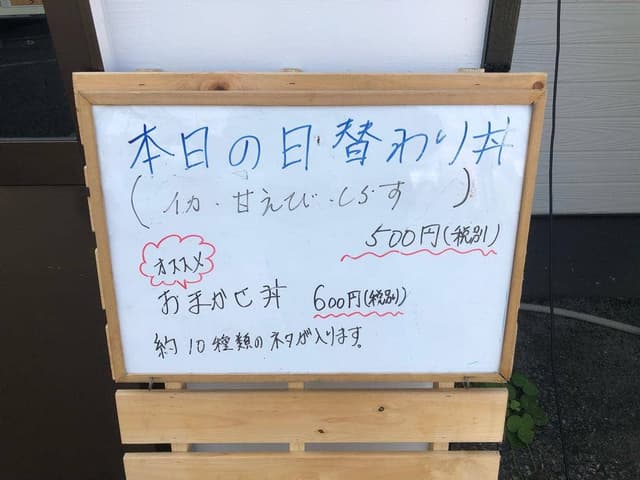 本日の日替わり丼
(イカ・甘えび・しらす)
500円(税別)
オススメ
おまかせ丼 600円(税別)
約10種類のネタが入ります。